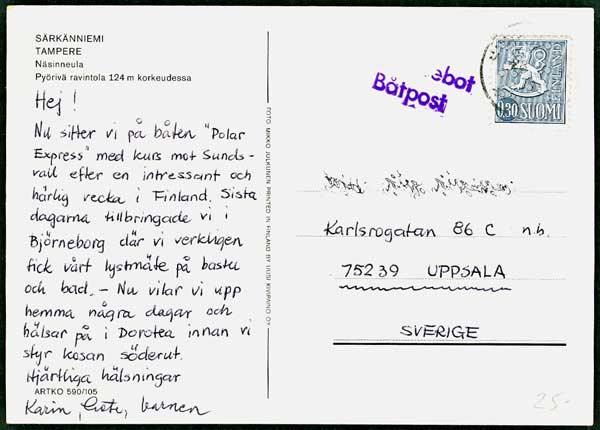 SÄRKÄNNIEMI
TAMPERE
Näsinneula
Pyörivä ravintola 124 m korkeudessa
Hej!
Nu sitter vi på båten "Polar
Express" med kurs mot Sunds-
vall efter en intressant och
härlig vecka i Finland. Sista
dagarna tillbringade vi i
Björneborg där vi verkligen
fick vårt lystmäte på bastu
och bad. - Nu vilar vi upp
hemma några dagar och
hälsar på i Dorotea innan vi
styr kosan söderut.
Hjärtliga hälsningar
ARTKO 590/105
Karin, barnen
FOTO MIKKO JULKUNEN PRINTED IN FINLAND BY UUSI KIVIPAINO OY
ebot
Båtpost
FINLAND
0,30 SUOMI
Karlsrogatan 86 C n.b.
75239 UPPSALA
SVERIGE
25-